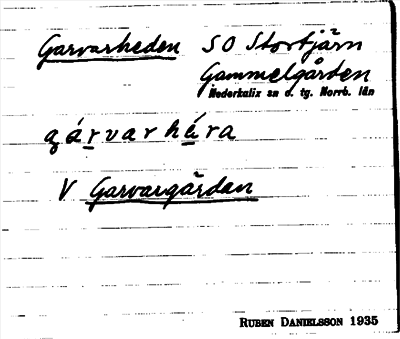 Garvarheden SO Stortjärn
Gammelgården
Nederkalix sn o. tg. Norrb. län
gárvarhéra
V Garvargården
RUBEN DANIELSSON 1935